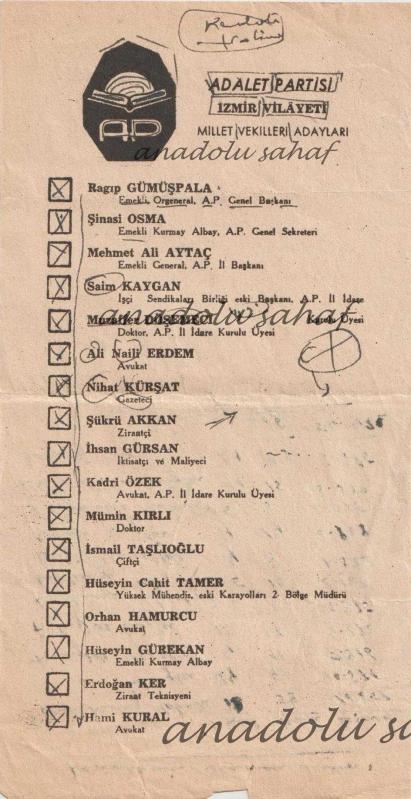 A.P
ADALET PARTİSİ
İZMİR VİLÂYETİ
MİLLET VEKİLLERİ ADAYLARI
anadolu sahaf
Ragıp GÜMÜŞPALA
Emekli, Orgeneral, A.P. Genel Başkanı
Şinasi OSMA
Emekli Kurmay Albay, A.P. Genel Sekreteri
Mehmet Ali AYTAÇ
Emekli General, A.P. İl Başkanı
Saim KAYGAN
İşçi Sendikaları Birliği eski Başkanı, A.P. İl İdare
Kurulu Üyesi
anadolu sahaf
Muzaffer DÖŞEMECİ
Doktor, A.P. İl İdare Kurulu Üyesi
Ali Naili ERDEM
Avukat
Nihat KÜRŞAT
Gazeteci
Şükrü AKKAN
Ziraatçi
İhsan GÜRSAN
İktisatçı ve Maliyeci
Kadri ÖZEK
Avukat, A.P. İl İdare Kurulu Üyesi
Mümin KIRLI
Doktor
İsmail TAŞLIOĞLU
Çiftçi
Hüseyin Cahit TAMER
Yüksek Mühendis, eski Karayolları 2 Bölge Müdürü
Orhan HAMURCU
Avukat
Hüseyin GÜREKAN
Emekli Kurmay Albay
Erdoğan KER
Ziraat Teknisyeni
Hami KURAL
Avukat
anadolu sa